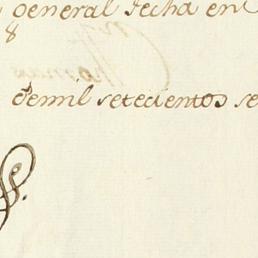 general fecha en
8
demil setecientos se